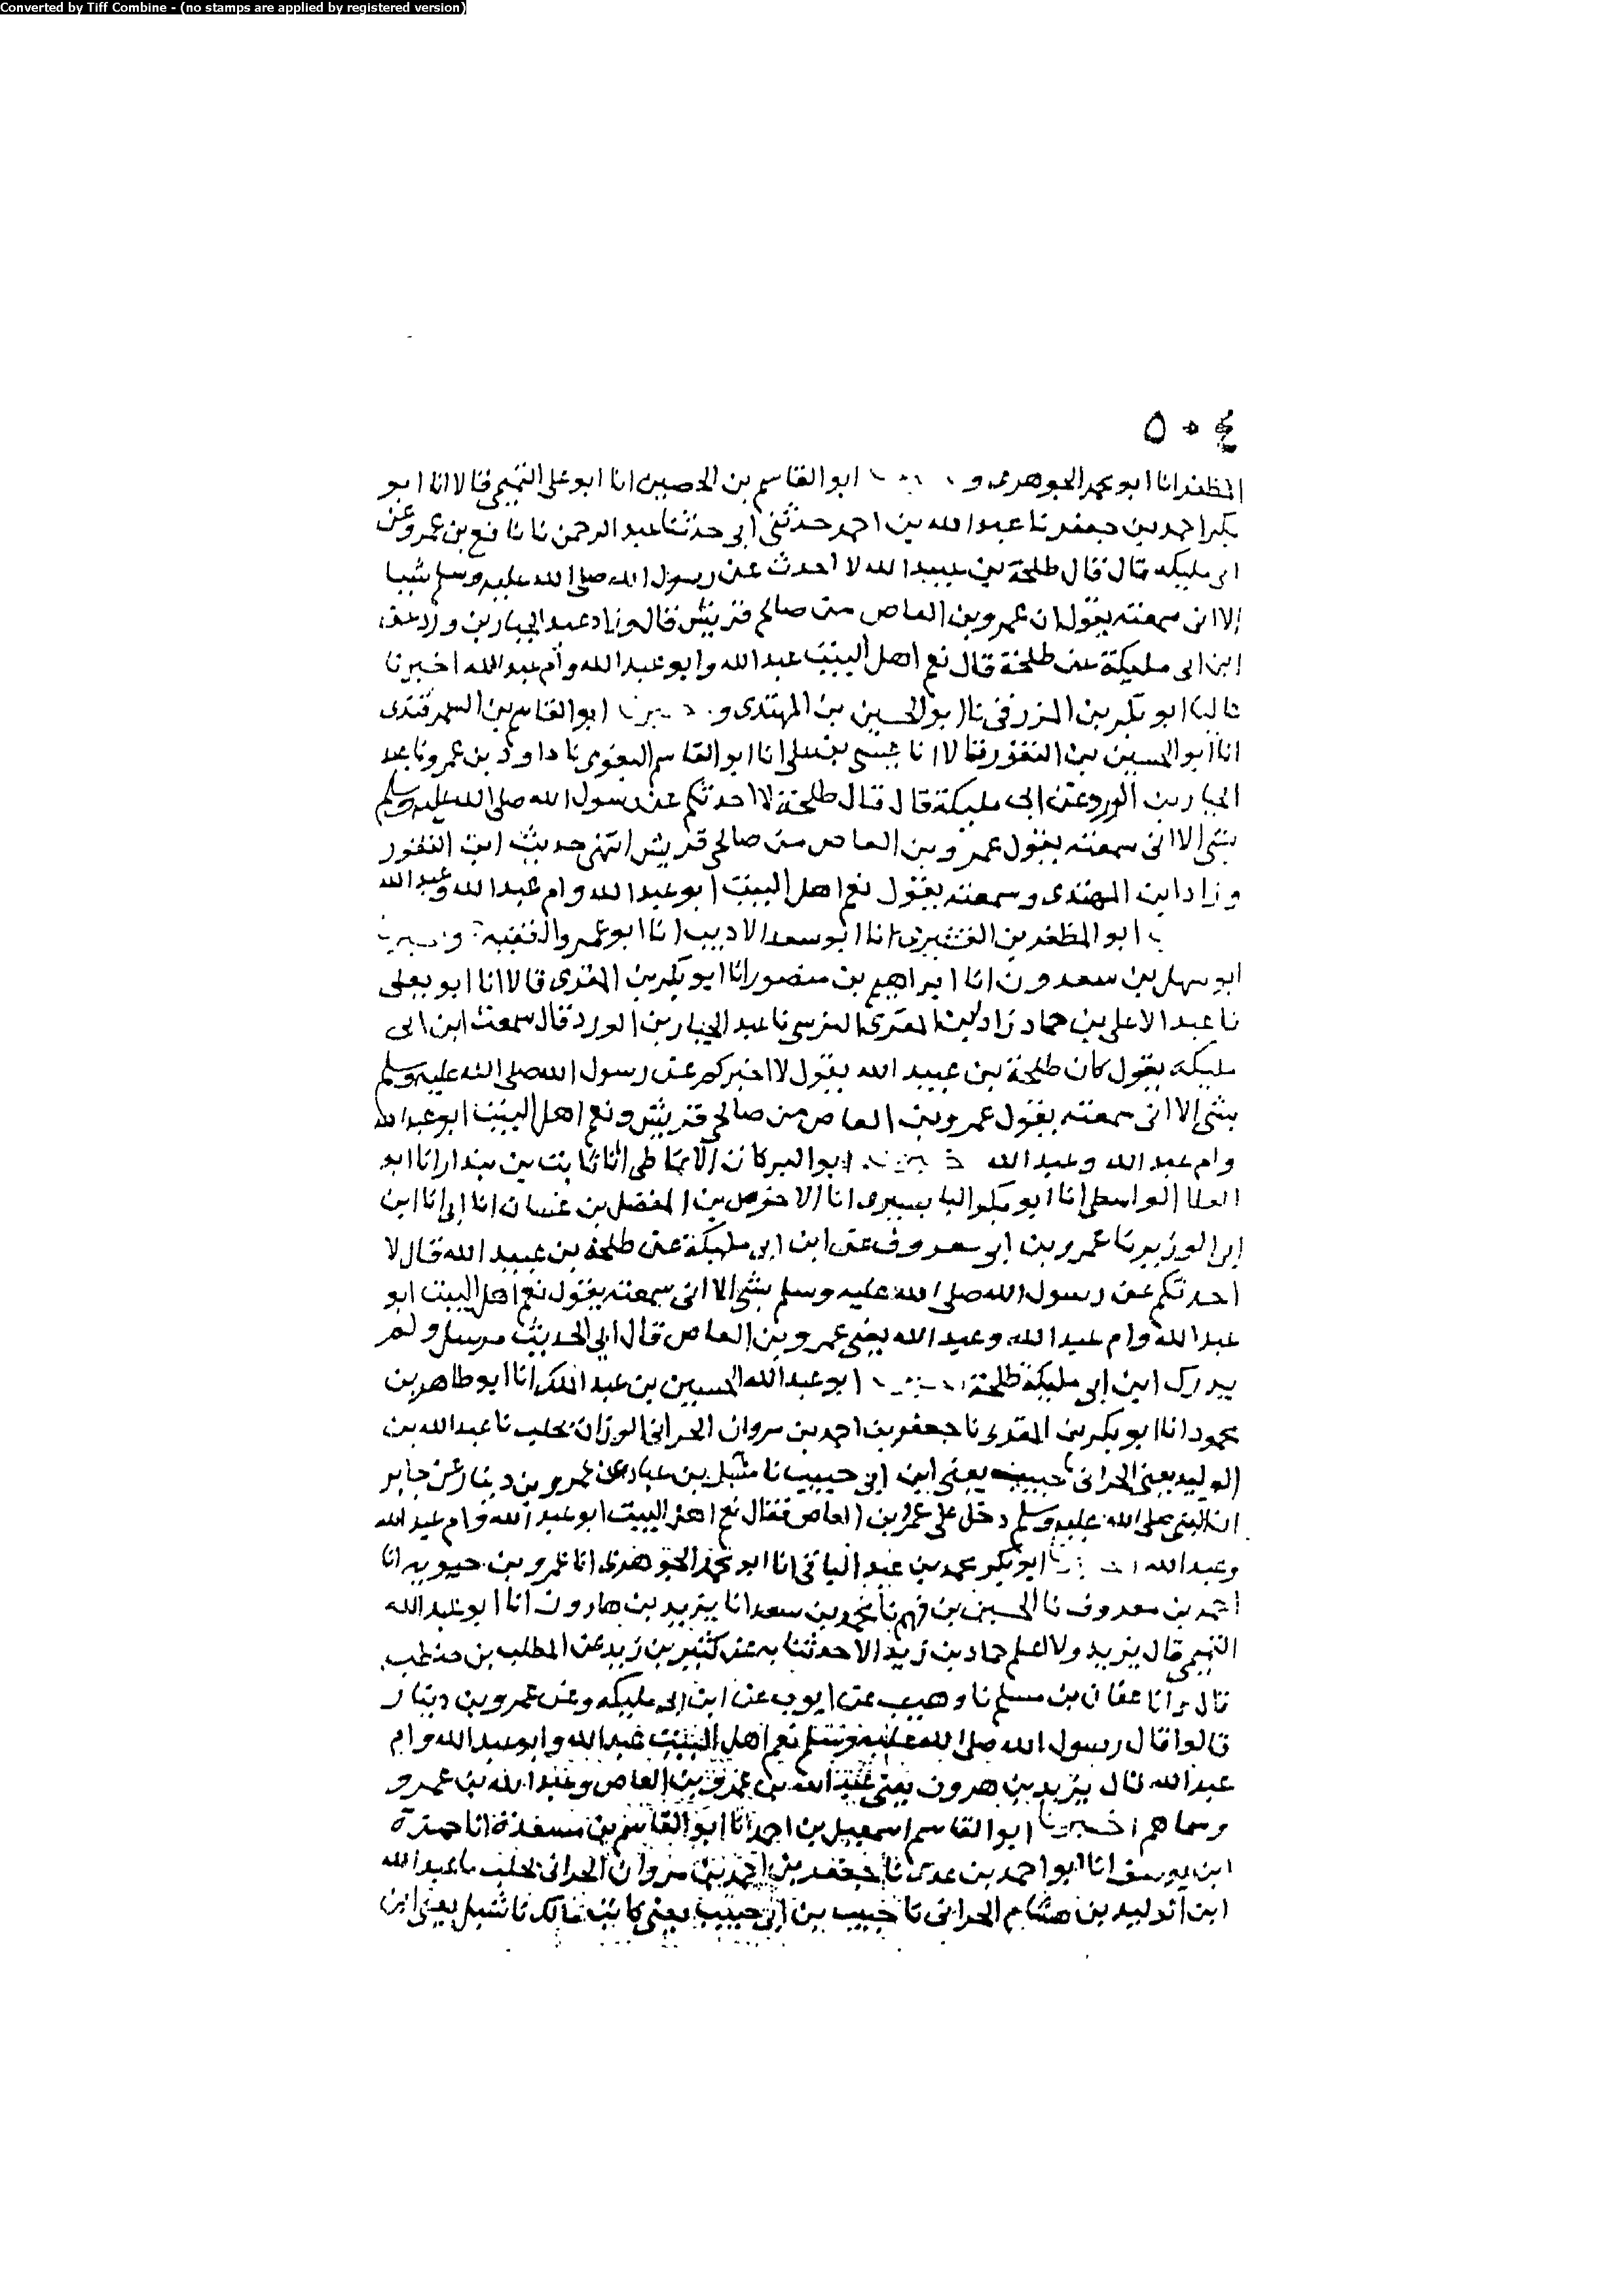 Converted by Tiff Combine - (no stamps are applied by registered version)
٥٠٤
المظفر انا ابو محمد الجوهرى و ابو القاسم بن الحصين انا ابو على التميمى قالا انا ابو
بكر احمد بن جعفر نا عبد الله بن احمد حدثنى ابى حدثنا عبد الرحمن نا نافع بن عمرو عن
ابى مليكه قال قال طلحة بن عبيد الله لا احدث عن رسول الله صلى الله عليه وسلم شيا
إلا انى سمعته يقول ان عمرو بن العاص من صالح قريش قال وزاد عبد الجبار بن ورد عن
ابن ابى مليكة عن طلحة قال نعم اهل البيت عبد الله وابو عبد الله وأم عبد الله اخبرنا
ابو بكر بن المزرفى نا ابو الحسين بن المهتدى و ابو القاسم بن السمرقندى
انا ابو الحسين بن النقور قالا انا عيسى بن على انا ابو القاسم البغوى نا داود بن عمرو نا عبد
الجبار بن الورد عن ابن ابى مليكة قال قال طلحة لا احدثكم عن رسول الله صلى الله عليه وسلم
بشئ الا انى سمعته يقول عمرو بن العاص من صالحى قريش انتهى حديث ابن النقور
وزاد ابن المهتدى وسمعته يقول نعم اهل البيت ابو عبد الله وام عبد الله وعبد الله
ابو المظفر بن القشيرى انا ابو سعد الاديب انا ابو عمرو الفقيه
ابو سهل بن سعدون انا ابراهيم بن منصور انا ابو بكر بن المقرى قالا انا ابو يعلى
نا عبد الاعلى بن حماد زاد ابن المقرى النرسى نا عبد الجبار بن الورد قال سمعت ابن ابى
مليكه يقول كان طلحة بن عبيد الله يقول لا اخبركم عن رسول الله صلى الله عليه وسلم
بشئ إلا انى سمعته يقول عمرو بن العاص من صالحى قريش ونعم اهل البيت ابو عبد الله
وام عبد الله وعبد الله ابو البركات الانماطى انا ثابت بن بندار انا ابو
العلا الواسطى انا ابو بكر البابسيرى انا الاحوص بن المفضل بن غسان انا ابى انا ابن
ابى الوزير نا عمرو بن ابى معروف عن ابن ابى مليكة عن طلحة بن عبيد الله قال لا
احدثكم عن رسول الله صلى الله عليه وسلم بشئ الا انى سمعته يقول نعم اهل البيت ابو
عبد الله وام عبد الله وعبد الله يعنى عمرو بن العاص قال ابى الحديث مرسل ولم
يدرك ابن ابى مليكة طلحة ابو عبد الله الحسين بن عبد الملك انا ابو طاهر بن
محمود انا ابو بكر بن المقرى نا جعفر بن احمد بن مروان الحرانى الوزان بحلب نا عبد الله بن
الوليد يعنى الحرانى نا حبيب يعنى ابن ابى حبيب نا شبل بن عباد عن عمرو بن دينار عن جابر
ان النبى صلى الله عليه وسلم دخل على عمرو بن العاص فقال نعم اهل البيت ابو عبد الله وام عبد الله
وعبد الله ابو بكر محمد بن عبد الباقى انا ابو محمد الجوهرى انا عمرو بن حيويه انا
احمد بن معروف نا الحسين بن فهم نا محمد بن سعد انا يزيد بن هارون انا ابو عبد الله
التيمى قال يزيد ولا اعلم حماد بن زيد الا حدثنا به عن كثير بن زيد عن المطلب بن حنطب
قال وانا عفان بن مسلم نا وهيب عن ايوب عن ابن ابى مليكه وعن عمرو بن دينار
قالوا قال رسول الله صلى الله عليه وسلم نعم اهل البيت عبد الله وابو عبد الله وام
عبد الله قال يزيد بن هرون يعنى عبد الله بن عمرو بن العاص وعبد الله بن عمرو
وسماهم اخبرنا ابو القاسم اسمعيل بن احمد انا ابو القاسم بن مسعدة انا حمزة
ابن يوسف انا ابو احمد بن عدى نا جعفر بن احمد بن مروان الحرانى بحلب نا عبد الله
ابن الوليد بن هشام الحرانى نا حبيب بن ابى حبيب يعنى كاتب مالك نا شبل يعنى ابن